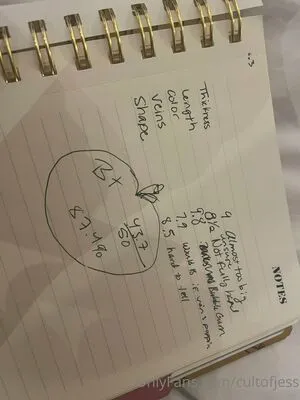 NOTES
Thickness 9 almost too big
Length 8½ Not fully hard
color 9.8 Bubble Gum
veins 7.9 would b if veins r
Shape 8.5 hard to tell
43.7
50
B+
87.4%
OnlyFans.com/cultofjess